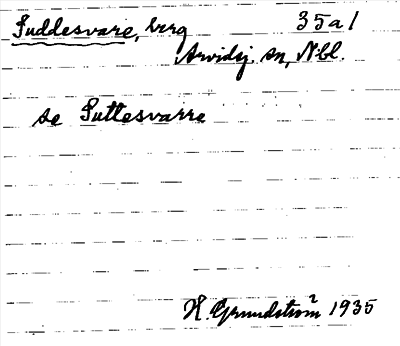 Suddesvare, berg 35a1
Arvidsj. sn, Nbl.
se Suttesvarre
H. Grundström 1935